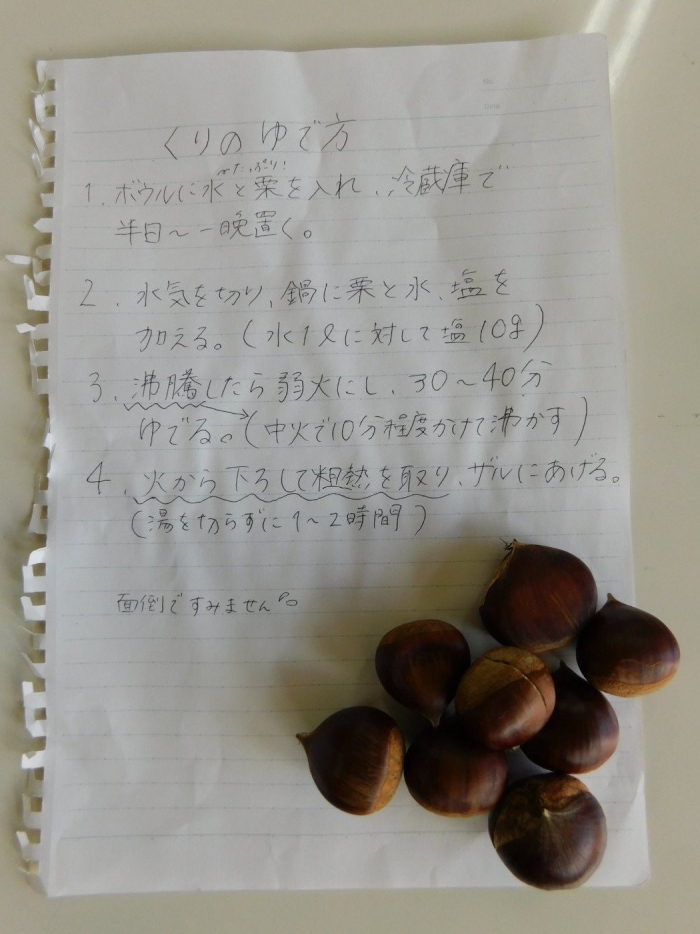 No.
Date
くりのゆで方
※たっぷり!
1. ボウルに水と栗を入れ、冷蔵庫で
半日〜一晩置く。
2. 水気を切り、鍋に栗と水、塩を
加える。(水1ℓに対して塩10g)
3. 沸騰したら弱火にし、30〜40分
ゆでる。(中火で10分程度かけて沸かす)
4. 火から下ろして粗熱を取り、ザルにあげる。
(湯を切らずに1〜2時間)
面倒ですみません